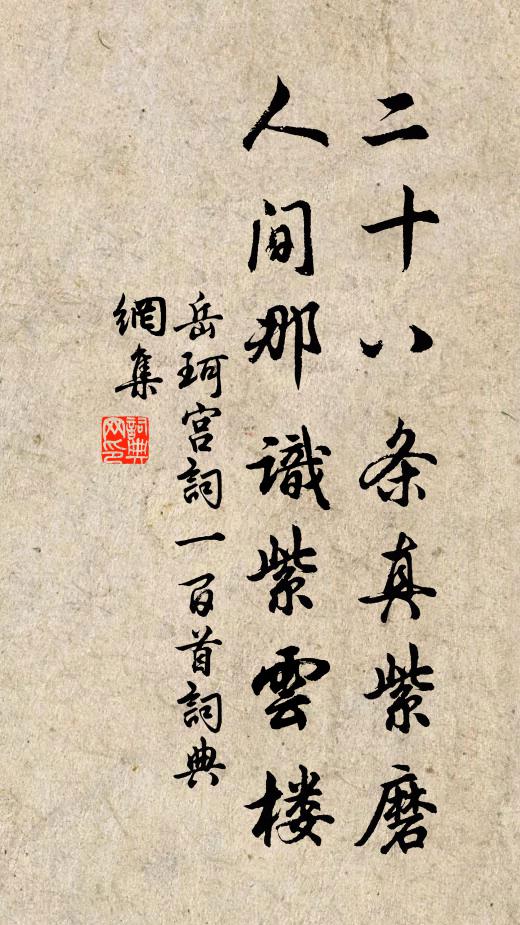 二十八条真紫磨
人间那識紫雲楼
岳珂宫詞一百首詞典
網集
詞典
网印